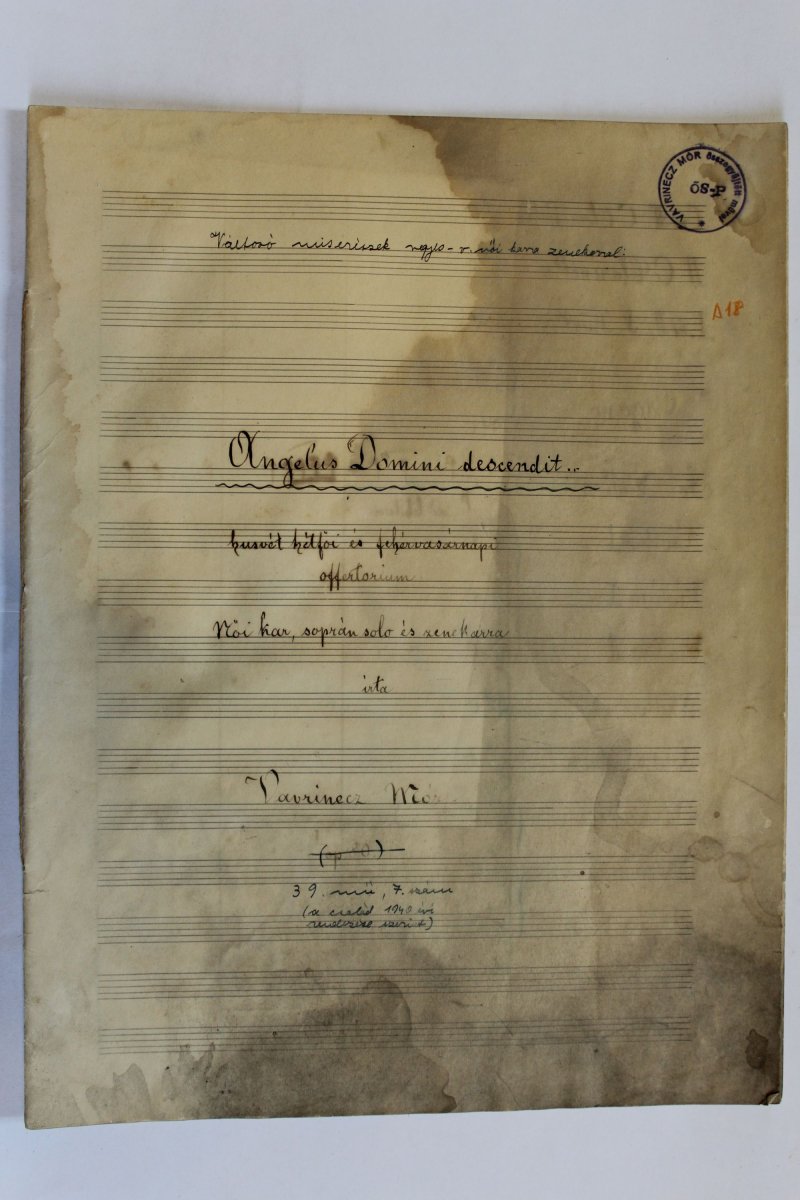 VAVRINECZ MÓR összegyűjtött művei
ŐS-P
Változó miserészek vegyes- v. női karra zenekarral:
A18
Angelus Domini descendit..
husvét hétfői és fehérvasárnapi
offertorium
Női kar, soprán solo és zenekarra
irta
Vavrinecz Mór
39. mű, 7. szám
(a család 1940 évi
rendezése szerint)